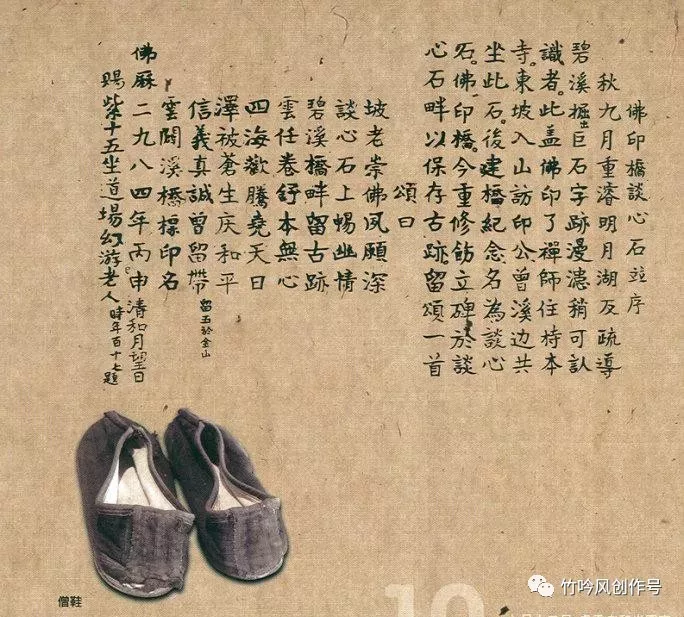 佛印橋談心石竝序
秋九月重濬明月湖及疏導
碧溪掘出巨石字跡漫漶稍可認
識者。此蓋佛印了禪師住持本
寺。東坡入山訪印公曾溪边共
坐此石。後建橋紀念名為談心
石。佛印橋今重修飭立碑於談
心石畔以保存古跡。留頌一首
頌曰
坡老崇佛夙願深
談心石上暢幽情
碧溪橋畔留古跡
雲任卷舒本無心
四海歡騰堯天日
澤被蒼生庆和平
信義真誠曾留帶 留玉於金山
雲閣溪橋摽印名
佛厤二九八四年丙申清和月望日
賜紫十五坐道場幻游老人。时年百十七題
僧鞋
竹吟风创作号
10